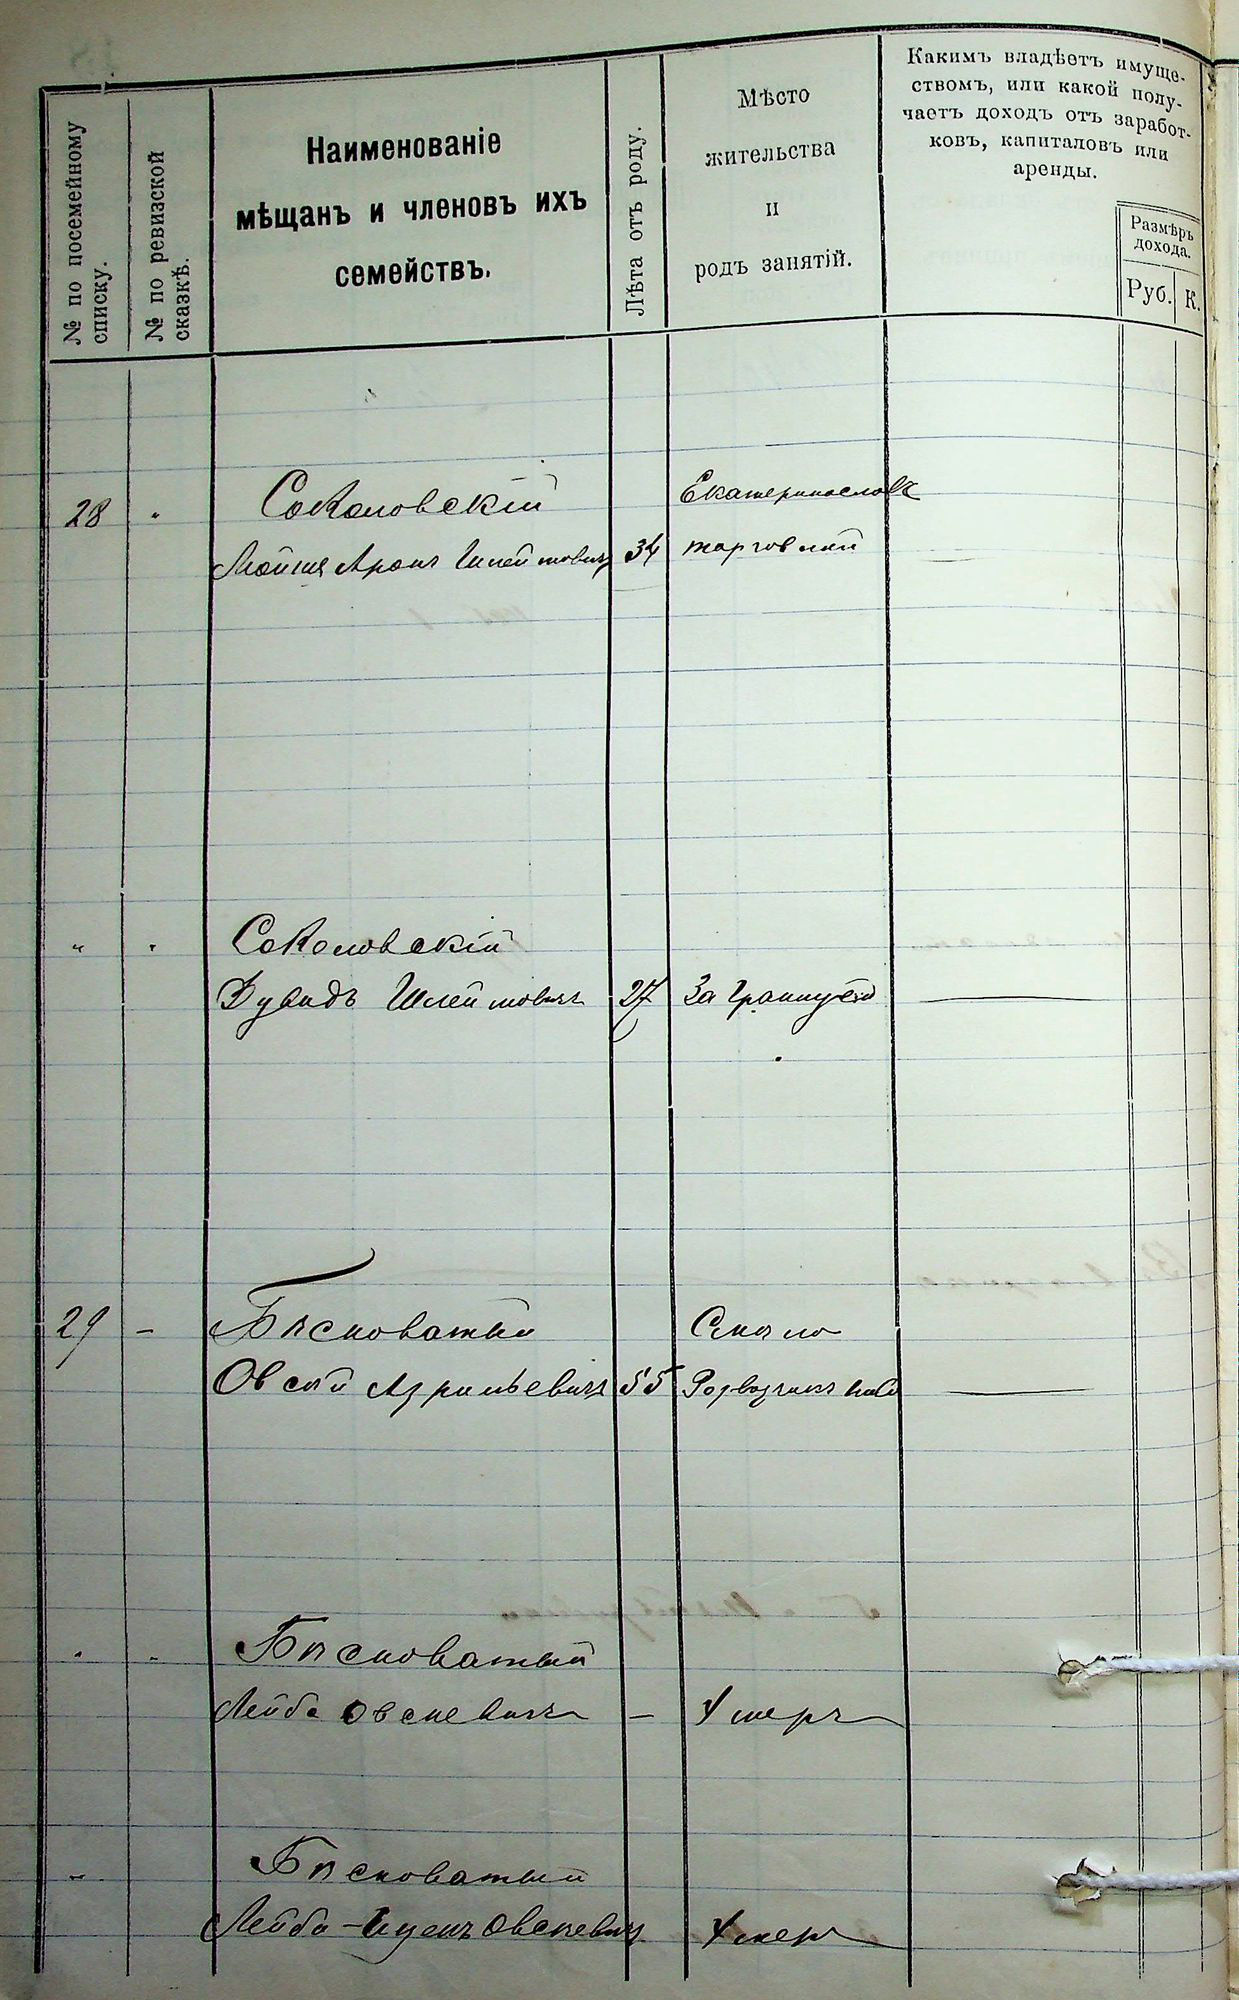 № по посемейному
списку.
№ по ревизской
сказкѣ.
Наименованіе
мѣщанъ и членовъ ихъ
семействъ.
Лѣта отъ роду.
Мѣсто
жительства
и
родъ занятій.
Какимъ владѣетъ имуще-
ствомъ, или какой полу-
чаетъ доходъ отъ заработ-
ковъ, капиталовъ или
аренды.
Размѣръ
дохода.
Руб. К.
28 " Соколовскій Екатеринославъ
Мойше Аронъ Шлеймовичъ 34 торговлей
" " Соколовскій
Дувидъ Шлеймовичъ 27 За Границей —
29 — Бѣсноватый Смѣло
Овсѣй Азрильевичъ 55 —
" " Бѣсноватый
Лейба Овсеевичъ — Умеръ
" Бѣсноватый
Лейба-Иценъ Овсеевичъ Умеръ